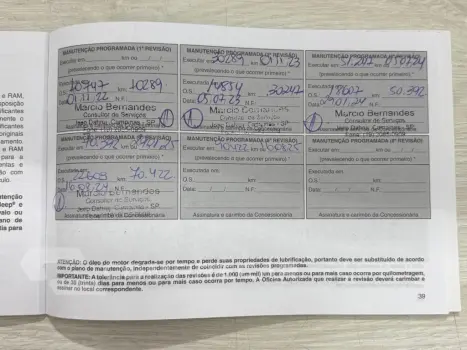 e RAM,
posição
ificantes
mente o
ficantes
originais
amento.
e RAM
para a
entas e
ão com
ulo.
tenção
Jeep® e
ano de
tia para
MANUTENÇÃO PROGRAMADA (1ª REVISÃO)
Executar em: km ou / /
(prevalecendo o que ocorrer primeiro).*
O.S.: 10947 km 10289
01.11.22 N.F.
Marcio Bernandes
Consultor de Serviços
Jeep Dahruj Campinas - SP
MANUTENÇÃO PROGRAMADA (2ª REVISÃO)
Executar em: 30289 01.11.23
(prevalecendo o que ocorrer primeiro).*
O.S.: km 30247
Data: 05.07.23 N.F.
Marcio Bernandes
Consultor de Serviços
MANUTENÇÃO PROGRAMADA (3ª REVISÃO)
(prevalecendo o que ocorrer primeiro).*
O.S.: 18607 km 50.392
Data: 09.01.24 N.F.
Marcio Bernandes
Consultor de Serviços
Jeep Dahruj Campinas - SP
Executar em: 70.392
(prevalecendo o que ocorrer primeiro).*
Executada em:
O.S.: 22608 km 70.422
Data: 16.08.24 N.F.
Marcio Bernandes
Consultor de Serviços
Jeep Dahruj Campinas - SP
Assinatura e carimbo da Concessionária
MANUTENÇÃO PROGRAMADA (5ª REVISÃO)
Executar em: 90.422
(prevalecendo o que ocorrer primeiro).*
Executada em:
O.S.: km
Data: / / N.F.:
Assinatura e carimbo da Concessionária
MANUTENÇÃO PROGRAMADA (6ª REVISÃO)
Executar em: km ou / /
(prevalecendo o que ocorrer primeiro).*
Executada em:
O.S.: km
Data: / / N.F.:
Assinatura e carimbo da Concessionária
ATENÇÃO: O óleo do motor degrada-se por tempo e perde suas propriedades de lubrificação, portanto deve ser substituído de acordo
com o plano de manutenção, independentemente de coincidir com as revisões programadas.
IMPORTANTE: A tolerância para a realização das revisões é de 1.000 (um mil) km para menos ou para mais caso ocorra por quilometragem,
ou de 30 (trinta) dias para menos ou para mais caso ocorra por tempo. A Oficina Autorizada que realizar a revisão deverá carimbar e
assinar no local correspondente.
39